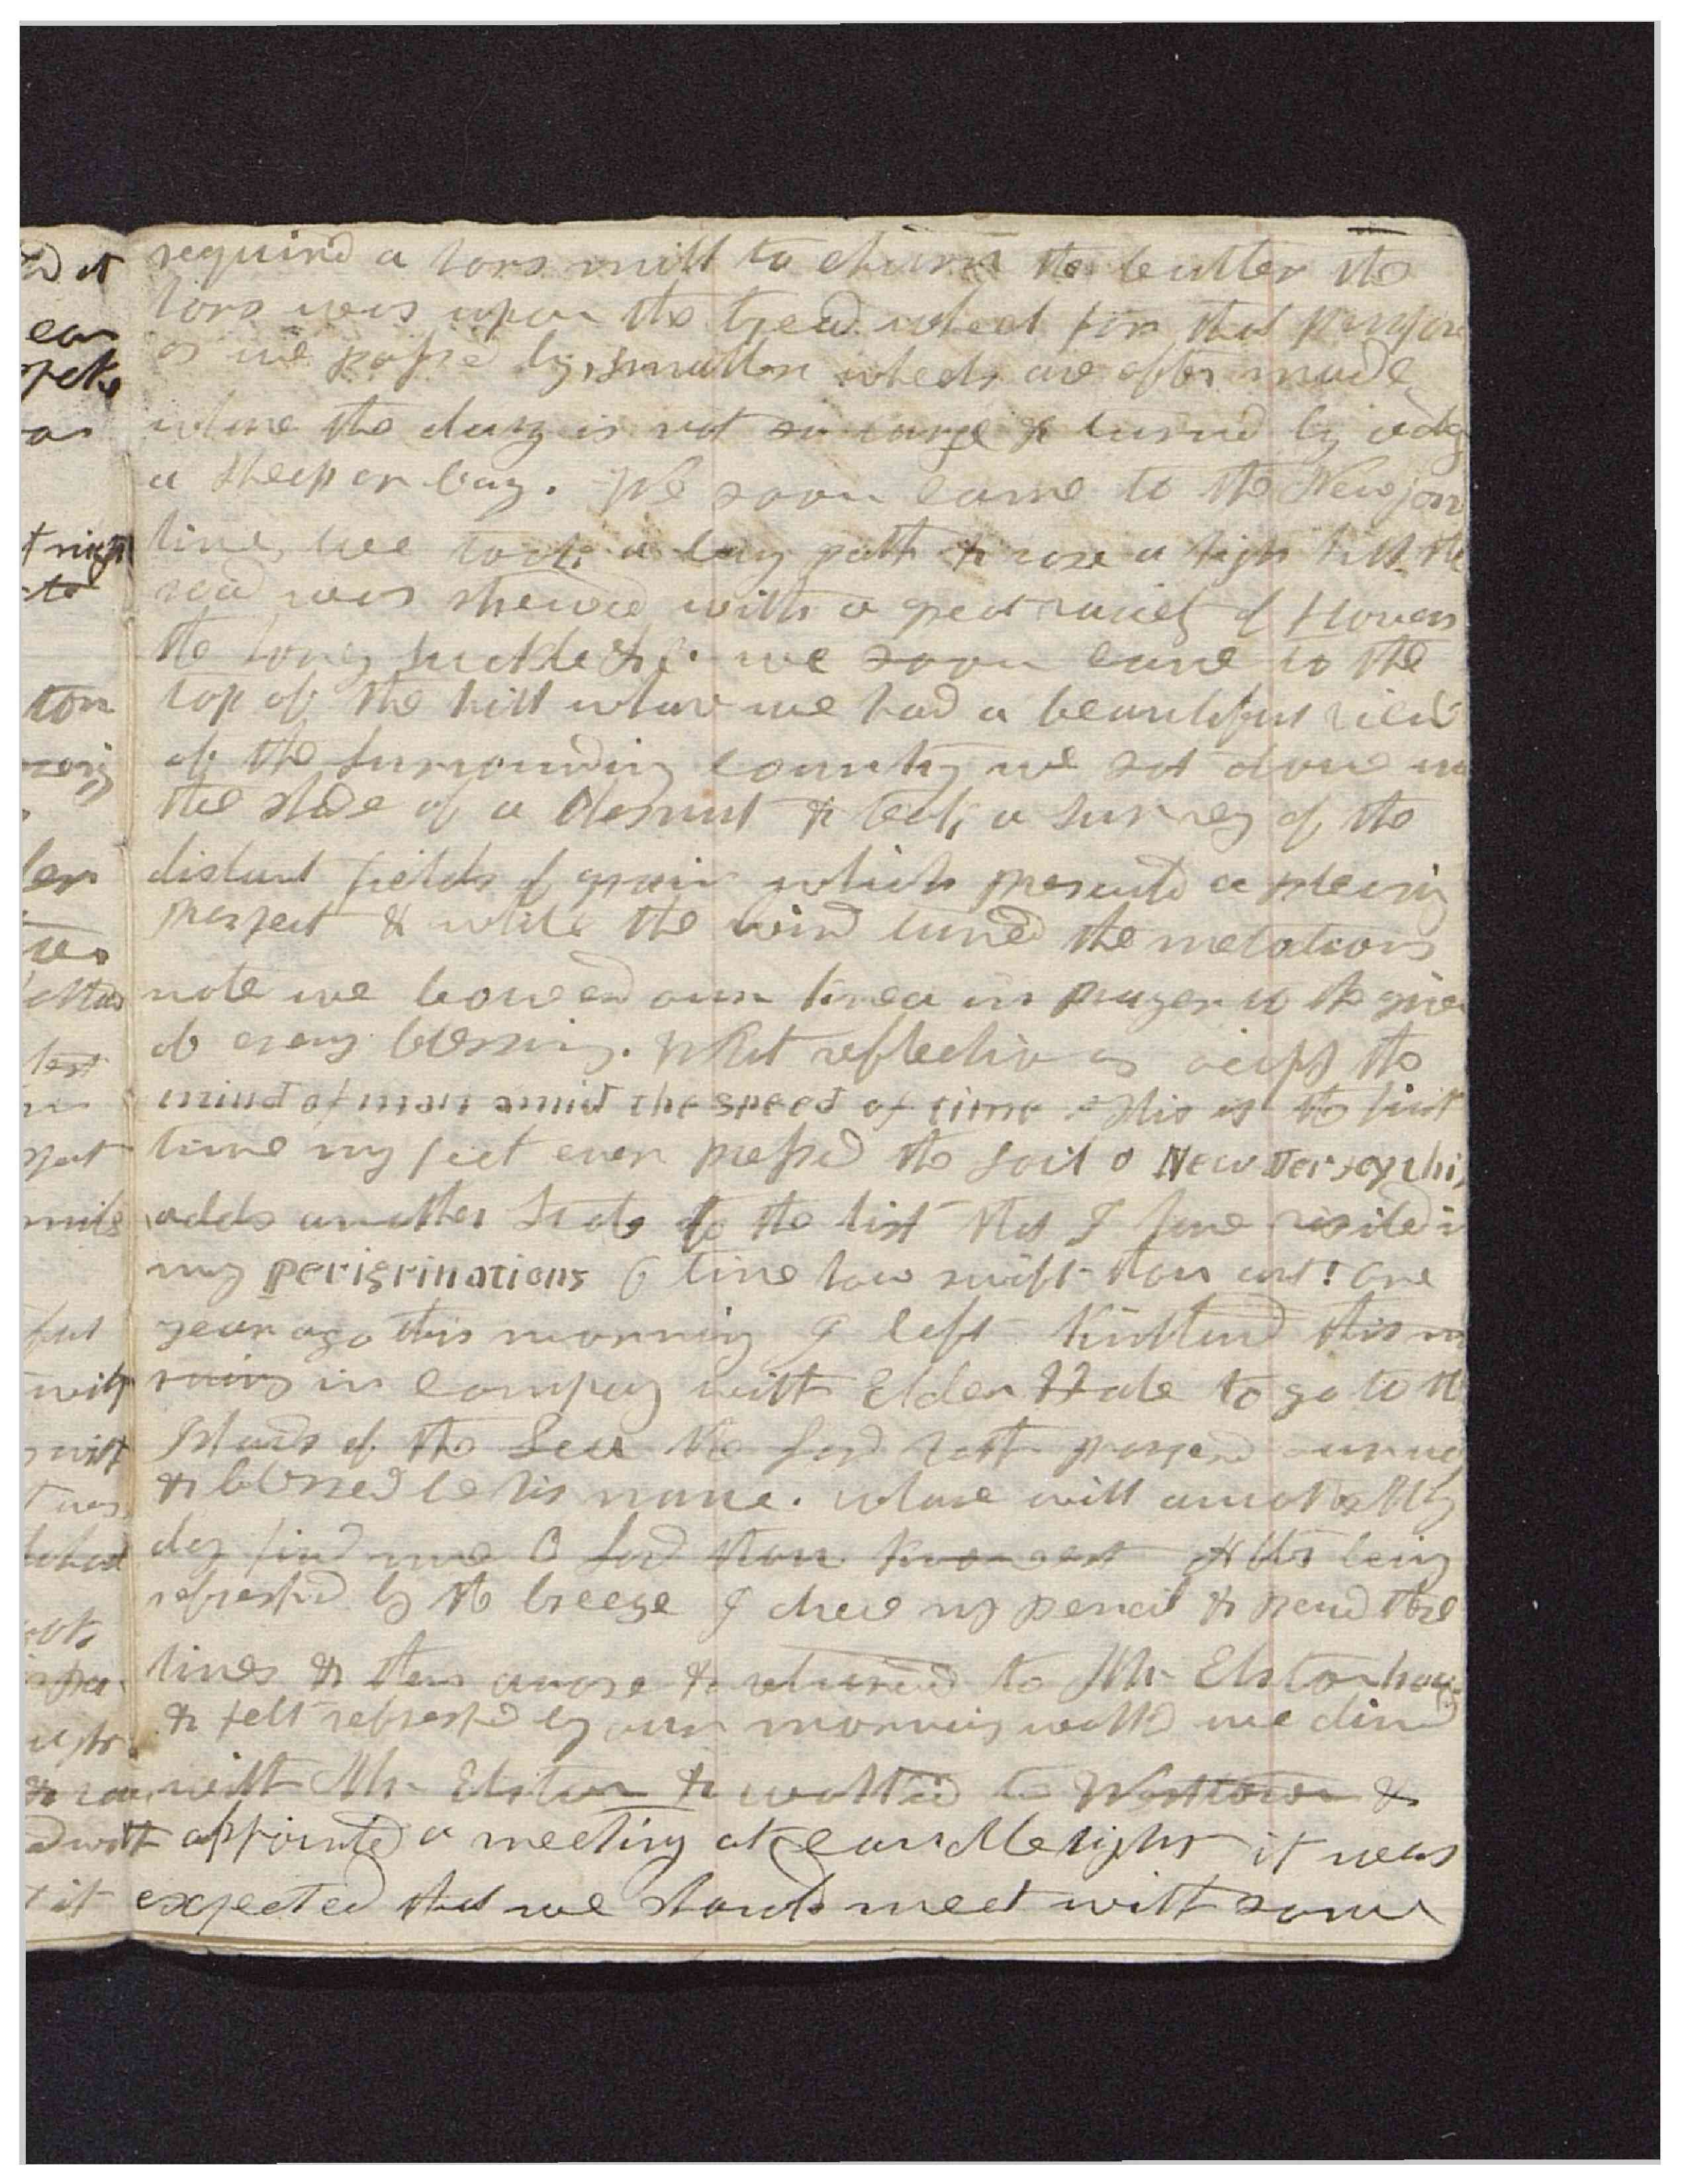 required a hors mill to churn the butter the
hors was upon the tread wheel for that purpose
as we passed by, smaller wheels are often made
whare the dary is not so large & turned by a dog
a sheep or boy. We soon came to the New jers
line, we took a buy path & rose a high hill the
road was strewed with a great variety of flowers
the honey suckle &c. we soon came to the
top of the hill whare we had a beautiful view
of the surrounding country we sot down in
the shade of a chesnut & took a survey of the
distant fields of grain which presented a pleasing
prospect & while the wind tuned the melatious
note we bowed our knees in prayer to the giver
of evry blessing. What reflections occupy the
mind of man amid the speed of time. This is the first
time my feet ever pressed the soil o New Jersey this
adds another State to the list that I have visited in
my perigrinations O time how swift thou art! One
year ago this morning I left Kirtland this mo
rning in company with Elder Hale to go to the
Islands of the Sea the Lord hath prospered our way
& blessed be his name. whare will another
day find me O Lord thou knowest After being
refreshed by the breeze I drew my pencil & pened these
lines & then arose & returned to Mr Elston house
& felt refreshed by our morning walk we dined
with Mr Elston & walked to Westtown &
appointed a meeting at candlelight it was
expected that we should meet with some